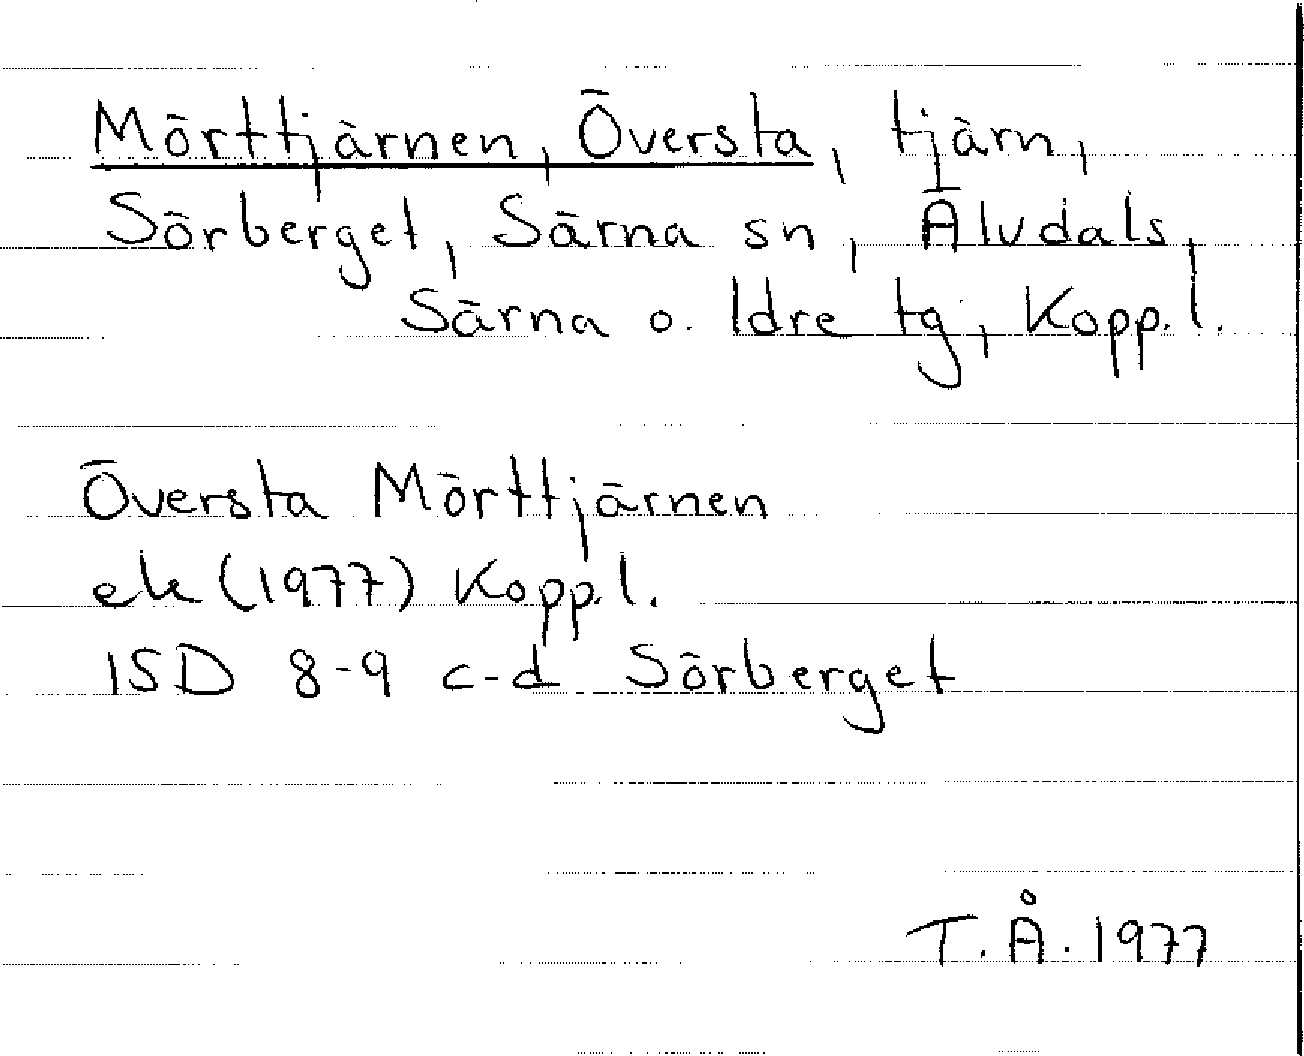 Mörttjärnen, Översta, tjärn,
Sörberget, Särna sn, Älvdals,
Särna o. Idre tg, Kopp. l.
Översta Mörttjärnen
ek (1977) Kopp. l.
15D 8-9 c-d Sörberget
T. Å. 1977